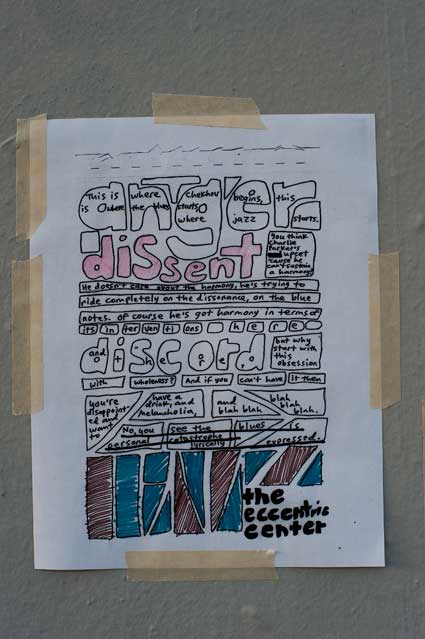 anger
This is where chekhov begins, this
is where the blues starts where jazz starts.
dissent
You think
Charlie
Parker's
upset
'cause he
can't sustain
a harmony
He doesn't care about the harmony, he's trying to
ride completely on the dissonance, on the blue
notes. of course he's got harmony in terms of
its in ter ven ti ons here
discord
and there
but why
start with
this
obsession
with wholeness? And if you can't have it then
you're
disappoint
ed and
want
to
have a
drink, and
melancholia,
and
blah blah
blah
blah
blah.
No, you see the blues is
personal catastrophe lyrically expressed.
the
eccentric
center